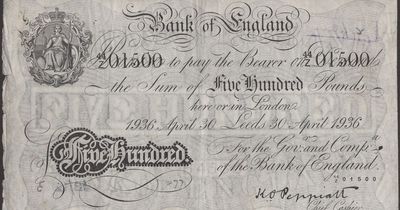 Bank of England
44/Z 01500 to pay the Bearer on 44/Z 01500
the Sum of Five Hundred Pounds
here or in London
1936 April 30 Leeds 30 April 1936
For the Gov: and Comp.a
Five Hundred
of the Bank of England.
01500
K O Peppiatt
Chief Cashier